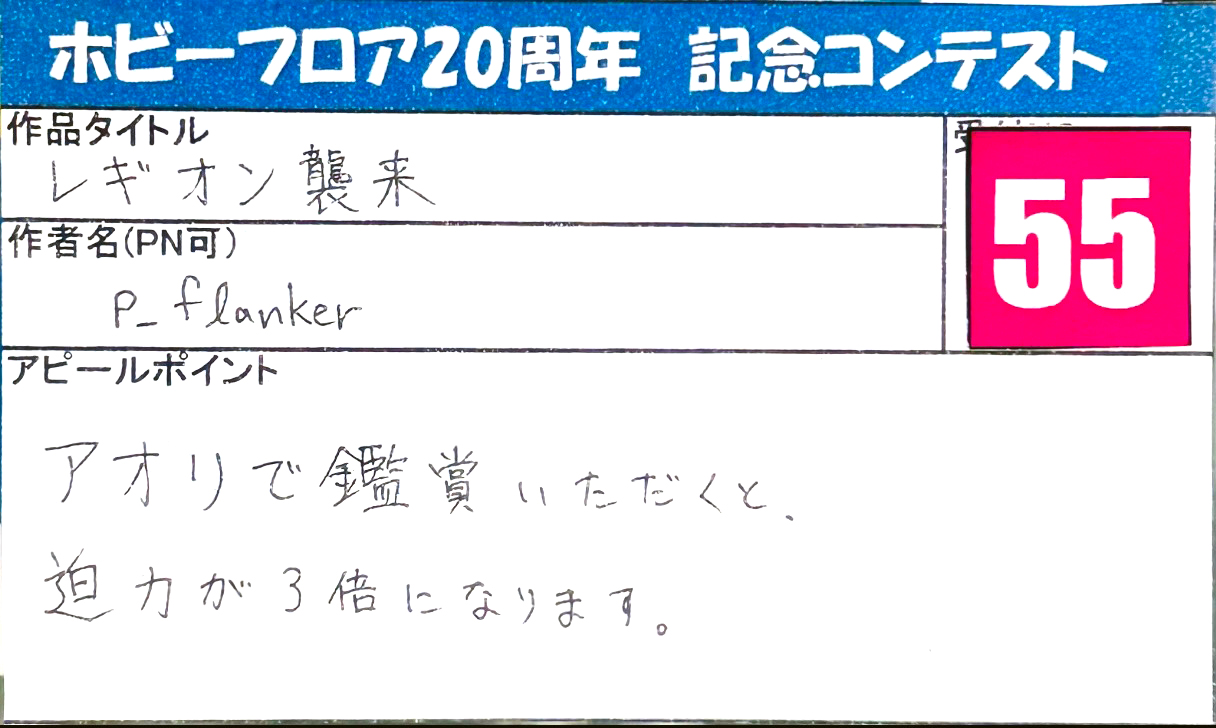 ホビーフロア20周年 記念コンテスト
作品タイトル
レギオン襲来
55
作者名(PN可)
P_flanker
アピールポイント
アオリで鑑賞いただくと、
迫力が3倍になります。